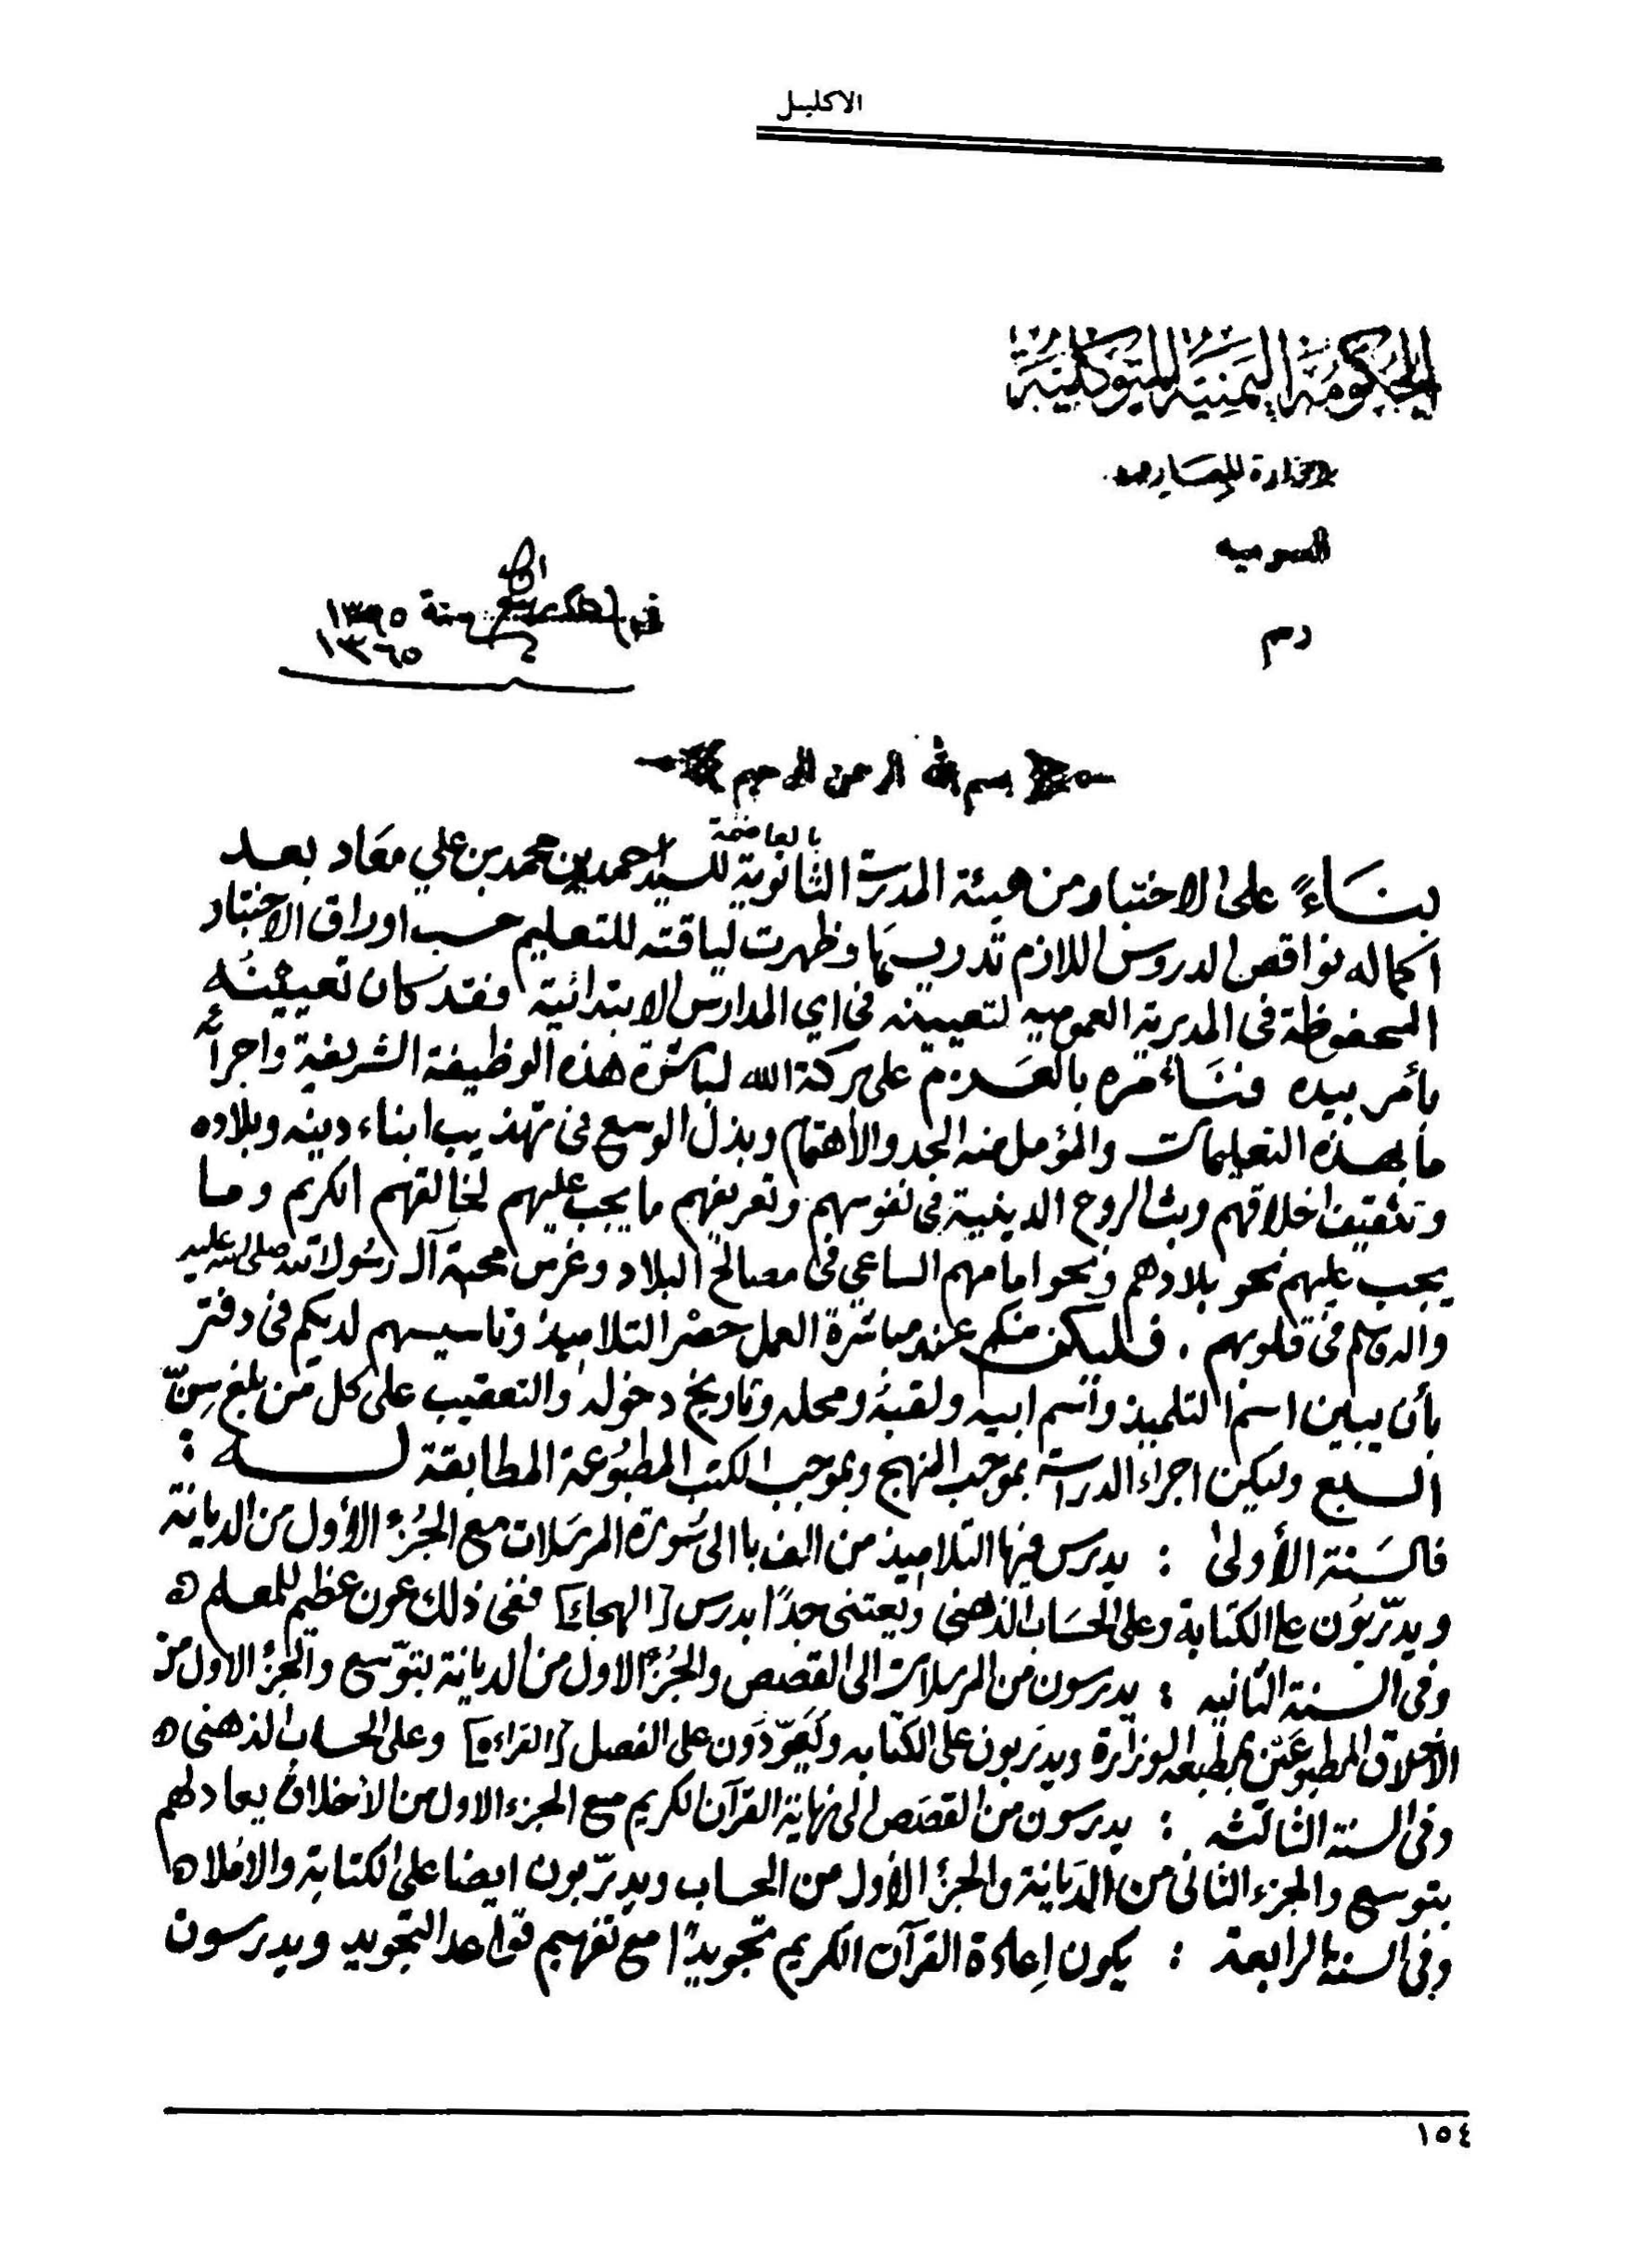 الاكليل
الحكومة اليمنية المتوكلية
وزارة المعارف
العموميه
في ربيع سنة ١٣٦٥
١٣٦٥
بسم الله الرحمن الرحيم
بالعاصمة
بناءً على الاختبار من هيئة المدرسة الثانوية للسيد احمد بن محمد بن علي معاد بعد
اكماله نواقص الدروس اللازم تدريسها وظهرت لياقته للتعليم حسب اوراق الاختبار
المحفوظة في المديرية العموميه لتعيينه في اي المدارس الابتدائية فقد كان تعيينه
بأمر بيده فنأمره بالعزم على بركة الله لمباشرة هذه الوظيفة الشريفة واجرائه
ما بهذه التعليمات والمؤمل منه الجد والاهتمام وبذل الوسع في تهذيب ابناء دينه وبلاده
وتثقيف اخلاقهم وبث الروح الدينية في نفوسهم وتعريفهم ما يجب عليهم لخالقهم الكريم وما
يجب عليهم نحو بلادهم ونحو امامهم الساعي في مصالح البلاد وغرس محبة آل رسول الله صلى الله عليه
واله وسلم في قلوبهم . فليكن منكم عند مباشرة العمل حصر التلاميذ وتاسيسهم لديكم في دفتر
بأن يبين اسم التلميذ واسم ابيه ولقبه ومحله وتاريخ دخوله والتعقيب على كل من بلغ سنّ
السبع وليكن اجراء الدراسة بموجب النهج وبموجب الكتب المطبوعة المطابقة لـه :
فالسنة الأولى : يدرس فيها التلاميذ من الف با الى سورة المرسلات مع الجزء الأول من الديانة
ويدرّبون على الكتابة وعلى الحساب الذهني ويعتنى جداً بدرس [الهجاء] ففي ذلك عون عظيم للمعلم ه
وفي السنة الثانيه : يدرسون من المرسلات الى القصص والجزء الاول من الديانة بتوسع والجزء الاول من
الاخلاق المطبوعَين بمطبعة الوزارة ويدربون على الكتابه ويعوّدون على الفصل [القراءه] وعلى الحساب الذهني ه
وفي السنة الثالثه : يدرسون من القصص الى نهاية القرآن الكريم مع الجزء الاول من الاخلاق يعاد لهم
بتوسع والجزء الثاني من الديانة والجزء الأول من الحساب ويدرّبون ايضا على الكتابة والاملاء ه
وفي السنة الرابعة : يكون إعادة القرآن الكريم تجويداً مع تفهيم قواعد التجويد ويدرسون
١٥٤